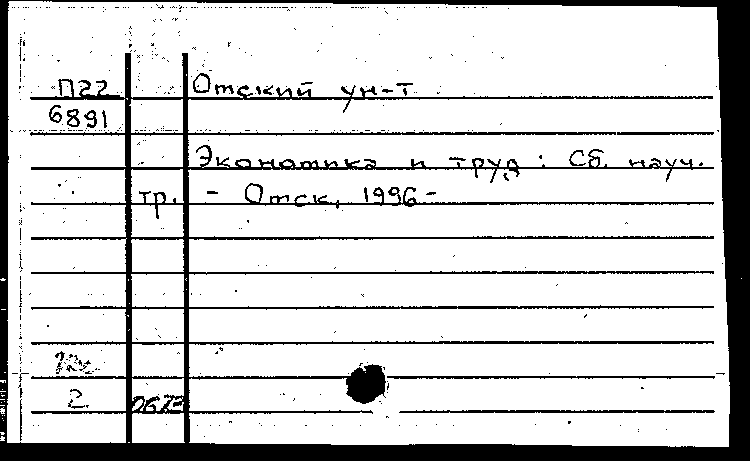 П22 Омский ун-т
6891
Экономика и труд : Сб. науч.
тр. - Омск, 1996 -
2 0673